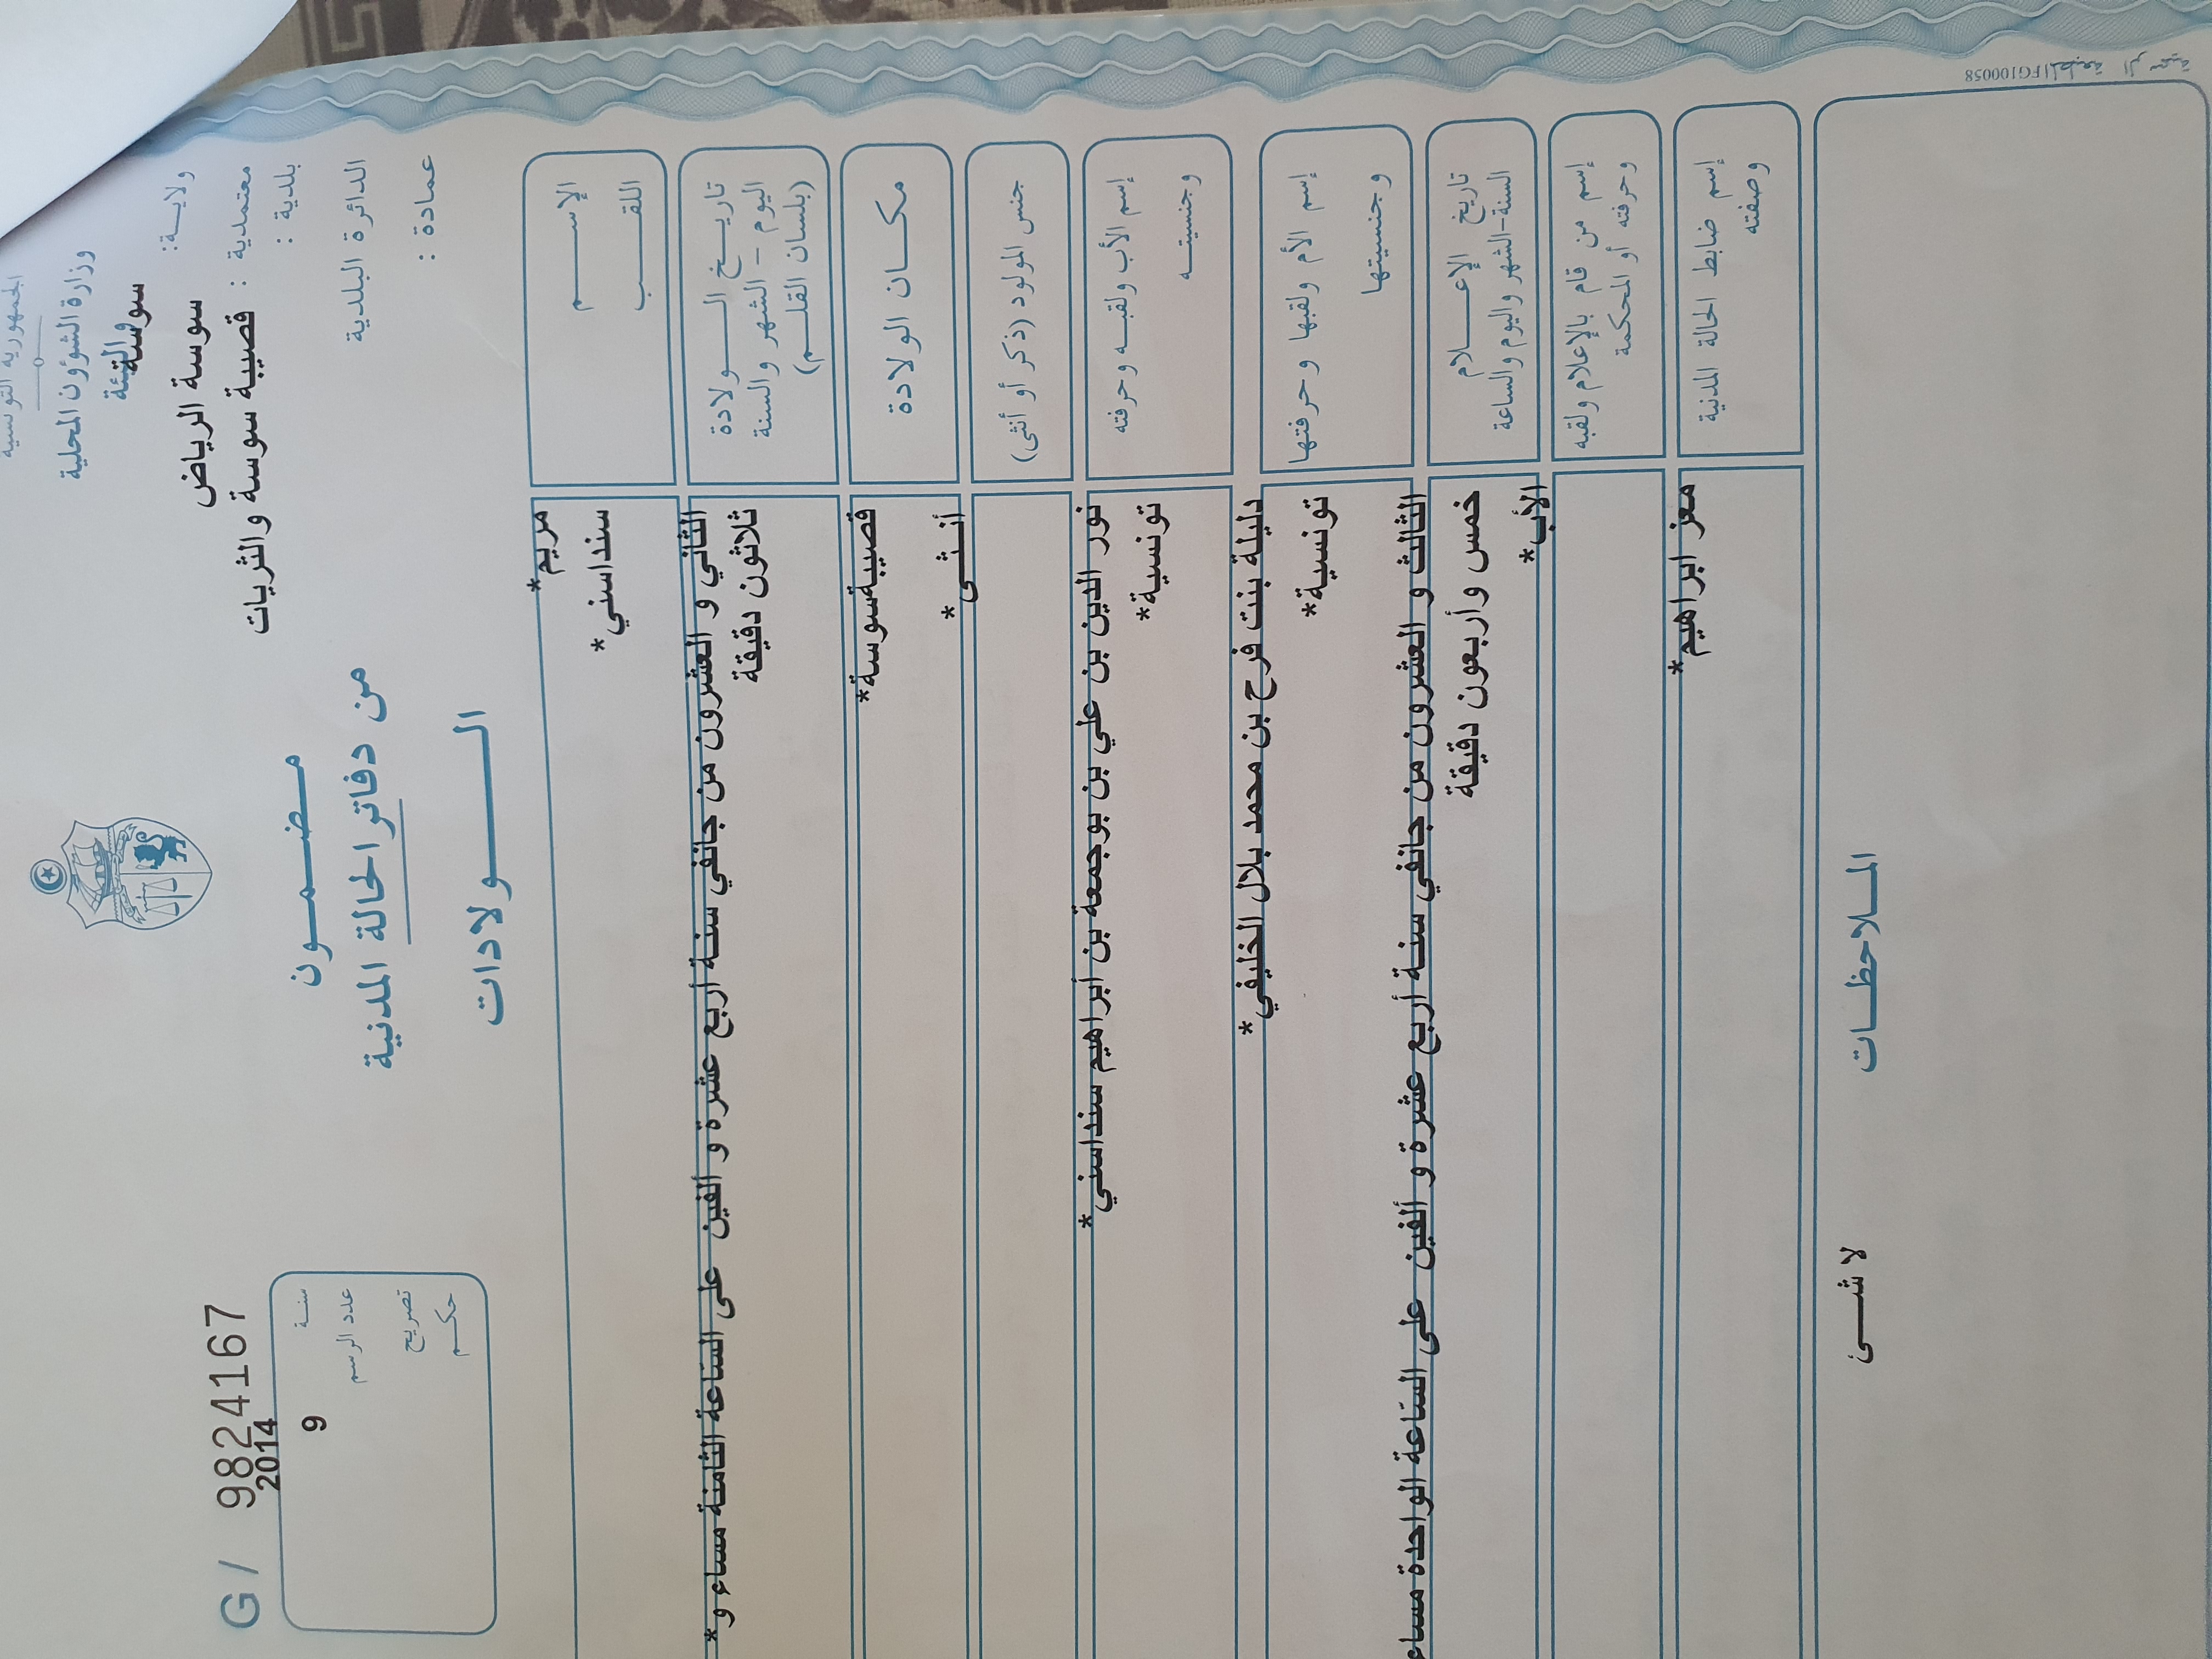 الجمهورية التونسية
وزارة الشؤون المحلية
والبيئة
ولايــة: سوسة
سوسة الرياض
معتمدية : قصيبة سوسة والثريات
بلدية :
الدائرة البلدية
عمادة :
مـضـمـون
من دفاتر الحالة المدنية
الـــولادات
G/ 9824167
سنـة 2014
عدد الرسم 9
تصريح
حكـم
الإســـم مريم*
اللقـــب سنداسني*
تاريـخ الـــولادة الثاني و العشرون من جانفي سنة أربع عشرة و ألفين على الساعة الثامنة مساء و*
اليوم – الشهر والسنة ثلاثون دقيقة
(بلسان القلـم)
مكـان الولادة قصيبةسوسة*
جنس المولود (ذكر أو أنثى) أنـثـى*
إسم الأب ولقبـه وحرفته نور الدين بن علي بن بوجمعة بن أبراهيم سنداسني*
وجنسيتـه تونسية*
إسم الأم ولقبها وحرفتها دليلة بنت فرح بن محمد بلال الخليفي*
وجنسيتها تونسية*
تاريخ الإعـــلام الثالث و العشرون من جانفي سنة أربع عشرة و ألفين على الساعة الواحدة مساء
السنة-الشهر واليوم والساعة خمس وأربعون دقيقة
إسم من قام بالإعلام ولقبه الأب*
وحرفته أو المحكمة
إسم ضابط الحالة المدنية معز ابراهيم*
وصفته
المـلاحظـات
لا شــئ
المطبعة الرسمية FG100058